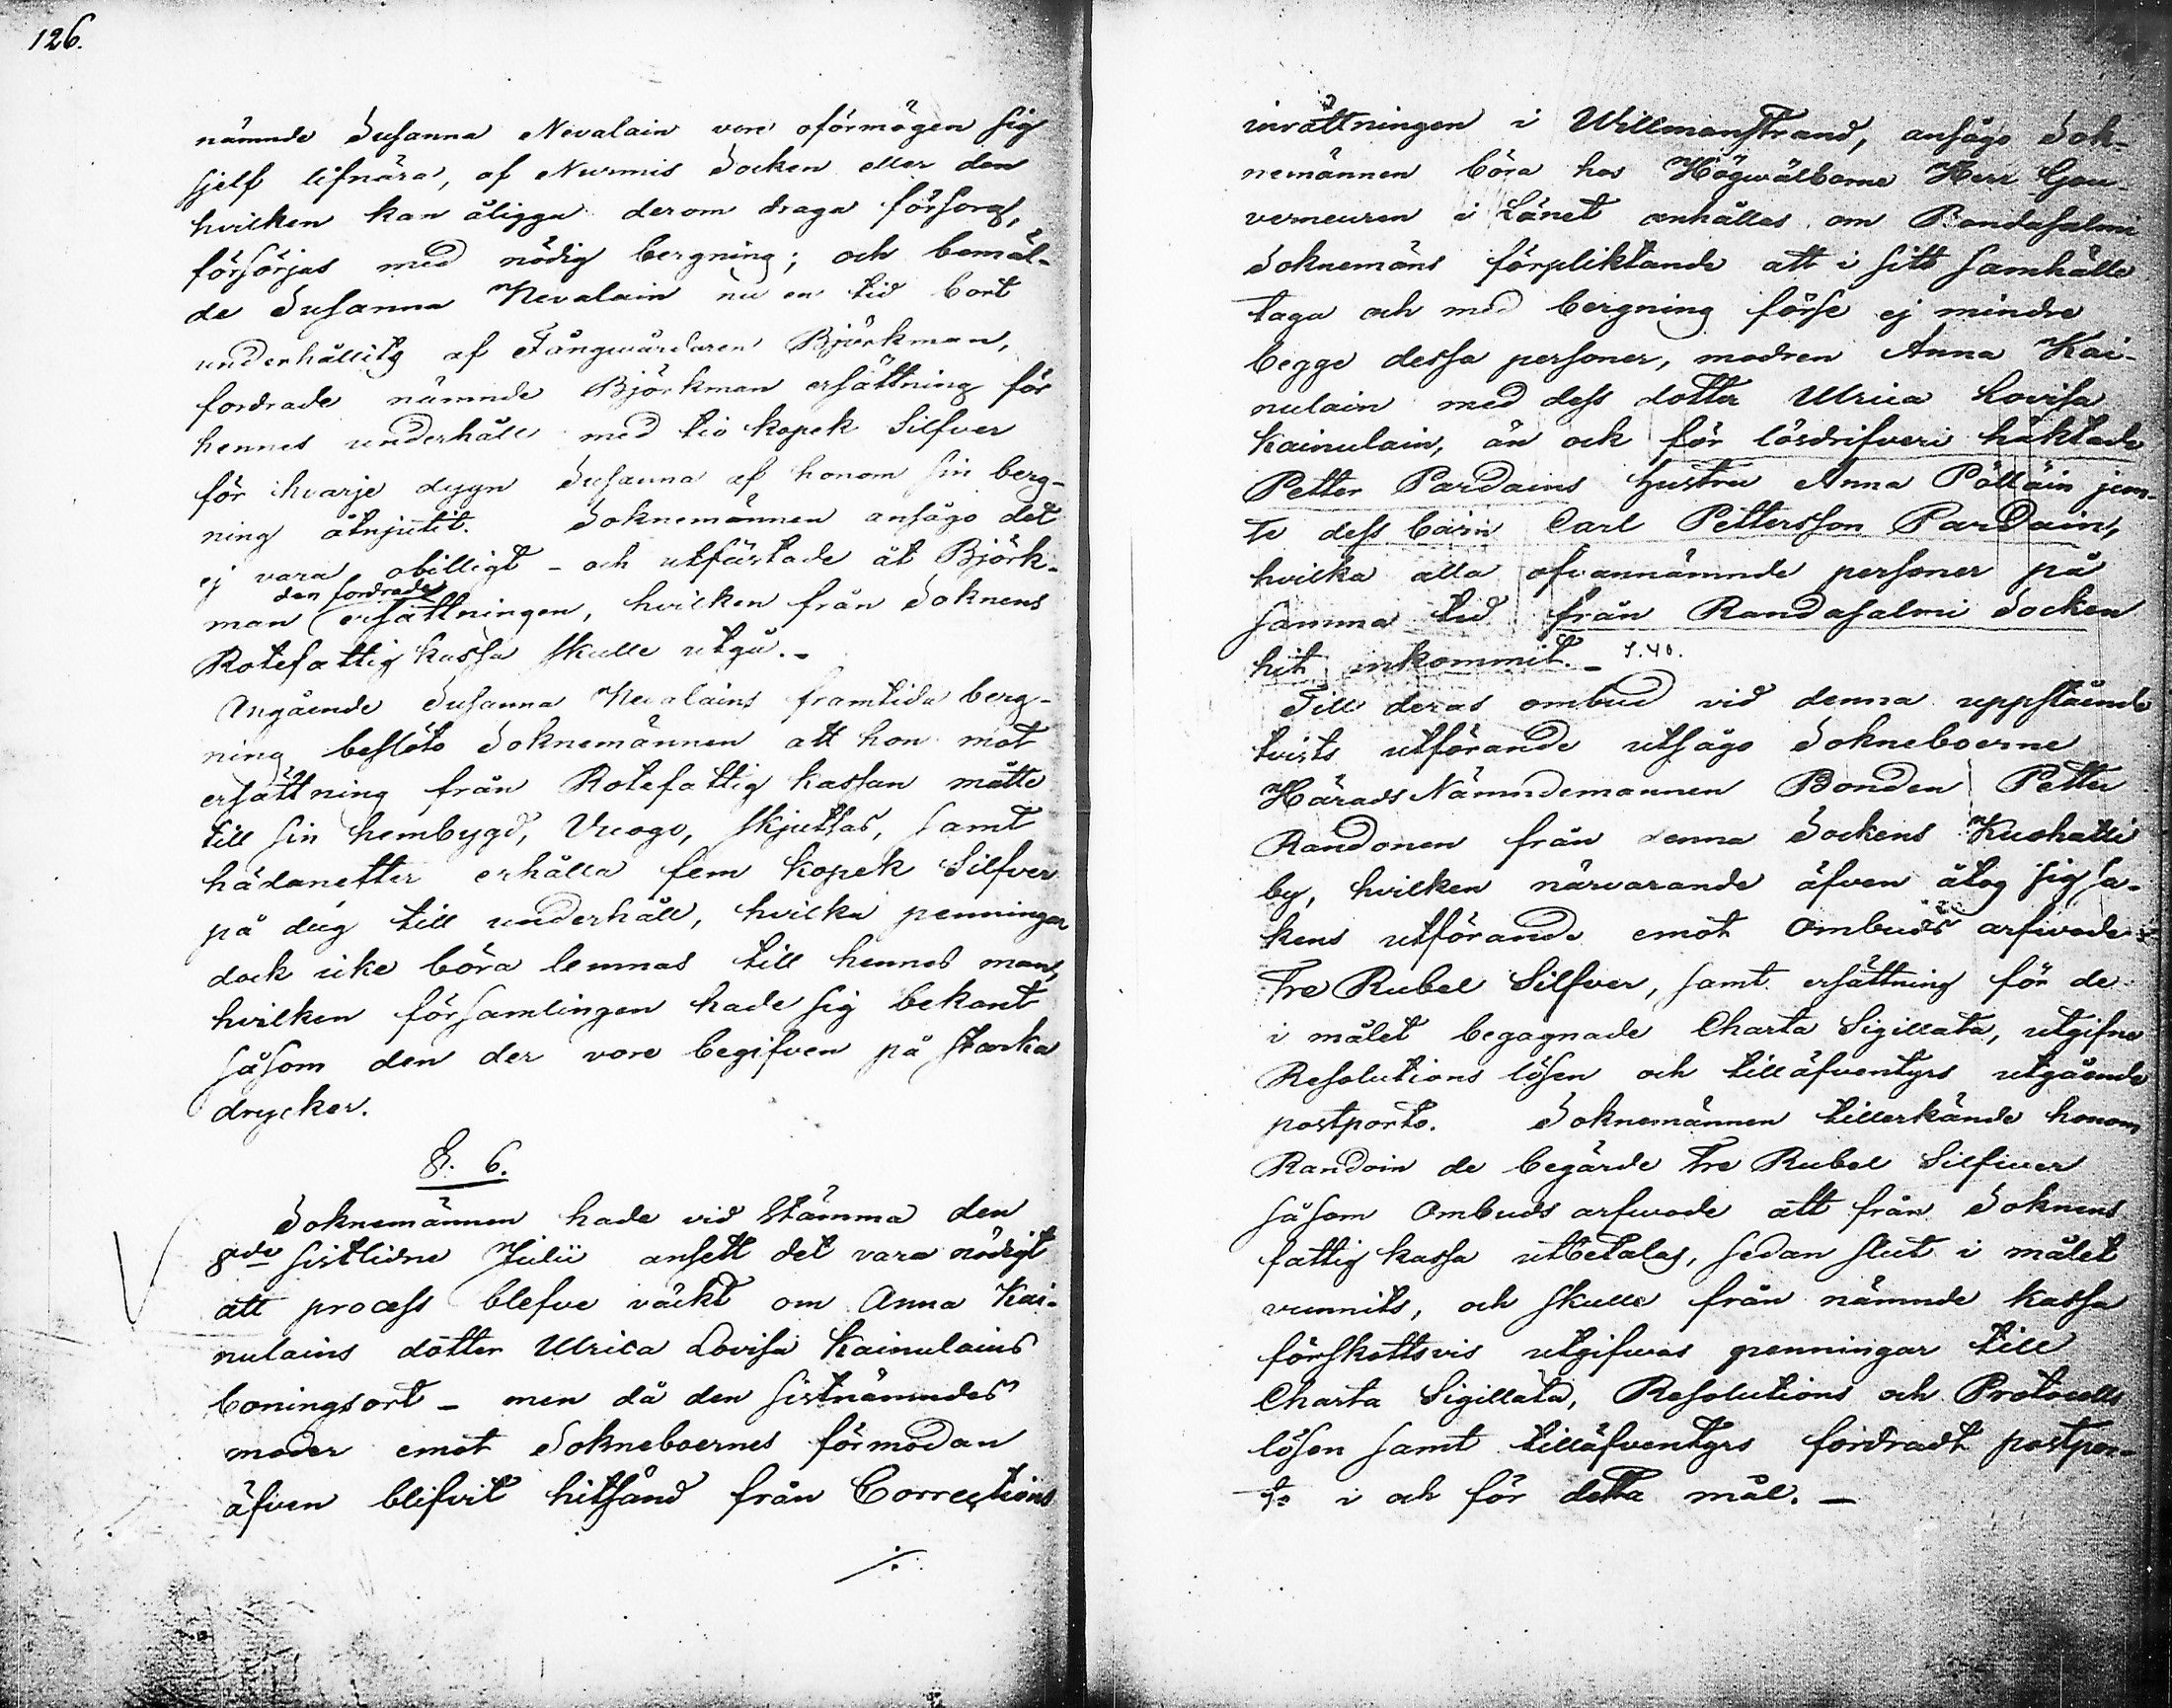 126.
nämnde Susanna Nevalain vore oförmögen sig
sjelf lifnära, af Nurmis Socken eller den
hvilken kan åligga derom draga försorg,
försörjas med nödig bergning; och bemäl-
de Susanna Nevalain nu en tid bort
underhållits af Fångwårdaren Björkman,
fordrade nämnde Björkman ersättning för
hennes underhåll med tio kopek Silfver
för hvarje dygn Susanna af honom sin berg-
ning åtnjutit. Soknemännen ansågo det
ej vara obilligt - och utfästade åt Björk-
den fordrade
man ersättningen, hvilken från Soknens
Rotefattig kassa skulle utgå. -
Angående Susanna Nevalains framtida berg-
ning beslöto Soknemännen att hon mot
ersättning från Rotefattig kassan måtte
till sin hembygd, Vuogo, skjutsas, samt
hädanefter erhålla fem kopek Silfver
på dag till underhåll, hvilka penningar
dock icke böra lemnas till hennes man,
hvilken församlingen hade sig bekant
såsom den der vore begifven på starka
drycker.
§. 6.
Soknemännen hade vid Stämma den
8de sistlidne Julii ansett det vara nödigt
att process blefve väckt om Anna Kai-
nulains dotter Ulrica Lovisa Kainulains
boningsort - men då den sistnämndes
moder emot Sokneboernes förmodan
äfven blifvit hitsänd från Corrections
./.
inrättningen i Willmanstrand, ansågo Sok-
nemännen böra hos Högwälborne Herr Gou-
verneuren i Länet anhållas om Randasalmi
Soknemäns förpliktande att i sitt samhälle
taga och med bergning förse ej mindre
begge dessa personer, modren Anna Kai-
nulain med dess dotter Ulrica Lovisa
Kainulain, än ock för lösdrifveri häktade
Petter Pardains hustru Anna Pölläin jem-
te dess barn Carl Pettersson Pardain,
hvilka alla ofvannämnde personer på
samma tid från Randasalmi Socken
hit inkommit. - S. 40.
Till deras ombud vid denna uppstående
tvists utförande utsågo Sokneboerne
Härads Nämndemannen Bonden Petter
Randonen från denna Sockens Kuohatti
by, hvilken närvarande äfven åtog sig sa-
kens utförande emot Ombuds arfvode
Tre Rubel Silfver, samt ersättning för de
i målet begagnade Charta Sigillata, utgifne
Resolutions lösen och tilläfventyrs utgående
postporto. Soknemännen tillerkände honom
Randoin de begärde Tre Rubel Silfwer
såsom Ombuds arfwode att från Soknens
fattig kassa utbetalas, sedan slut i målet
vunnits, och skulle från nämnde kassa
förskottsvis utgifwas penningar till
Charta Sigillata, Resolutions och Protocolls
lösen samt tilläfventyrs fordradt postpor-
to i och för detta mål. -